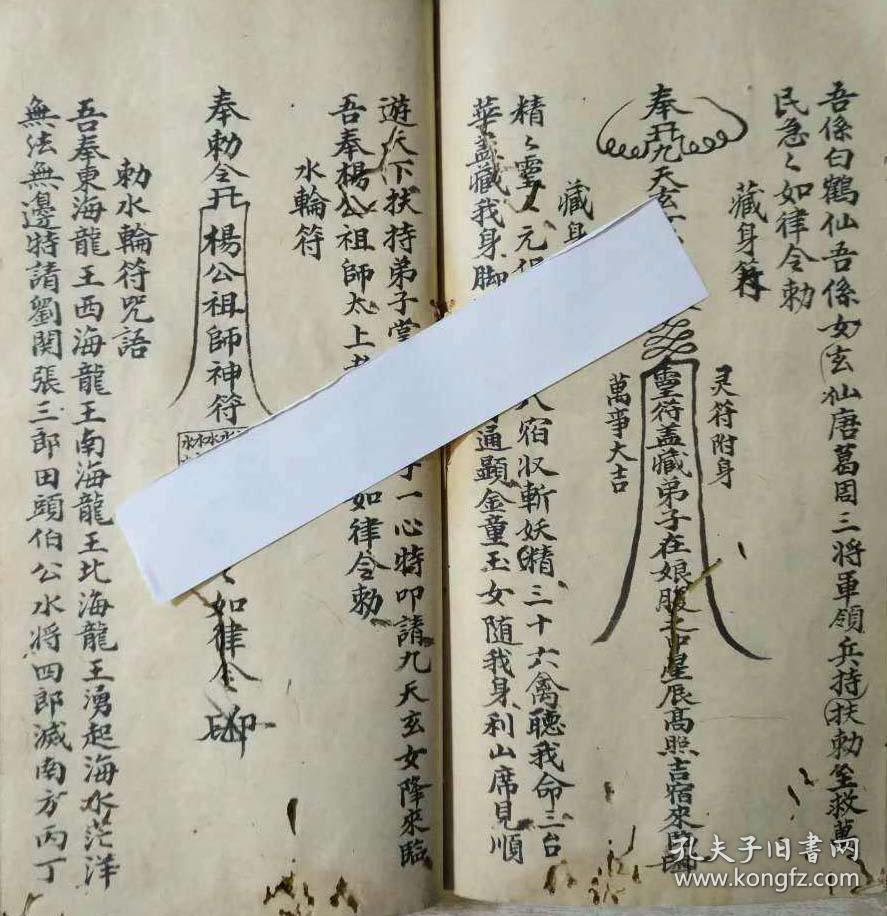 吾係白鶴仙吾係女玄仙唐葛周三將軍領兵持扶勅至救萬
民急々如律令勅
藏身符
灵符附身
奉 九天玄
靈符蓋藏弟子在娘腹 星辰高照吉宿來臨
萬事大吉
藏身
精々靈々元 八宿収斬妖精三十六禽聽我命三台
華蓋藏我身脚 通顯金童玉女随我身利山席見順
遊天下扶持弟子 一心特叩請九天玄女降來臨
吾奉楊公祖師太上 如律令勅
水輪符
奉勅令 楊公祖師神符
水水水水
々如律令
勅水輪符咒語
吾奉東海龍王西海龍王南海龍王北海龍王湧起海水茫洋
無法無邊特請劉関張三郎田頭伯公水將四郎滅南方丙丁
孔夫子旧書网
www.kongfz.com